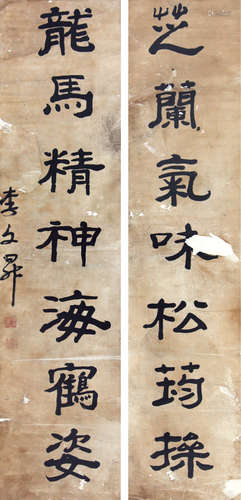 芝蘭氣味松筠操
龍馬精神海鶴姿
李文昇